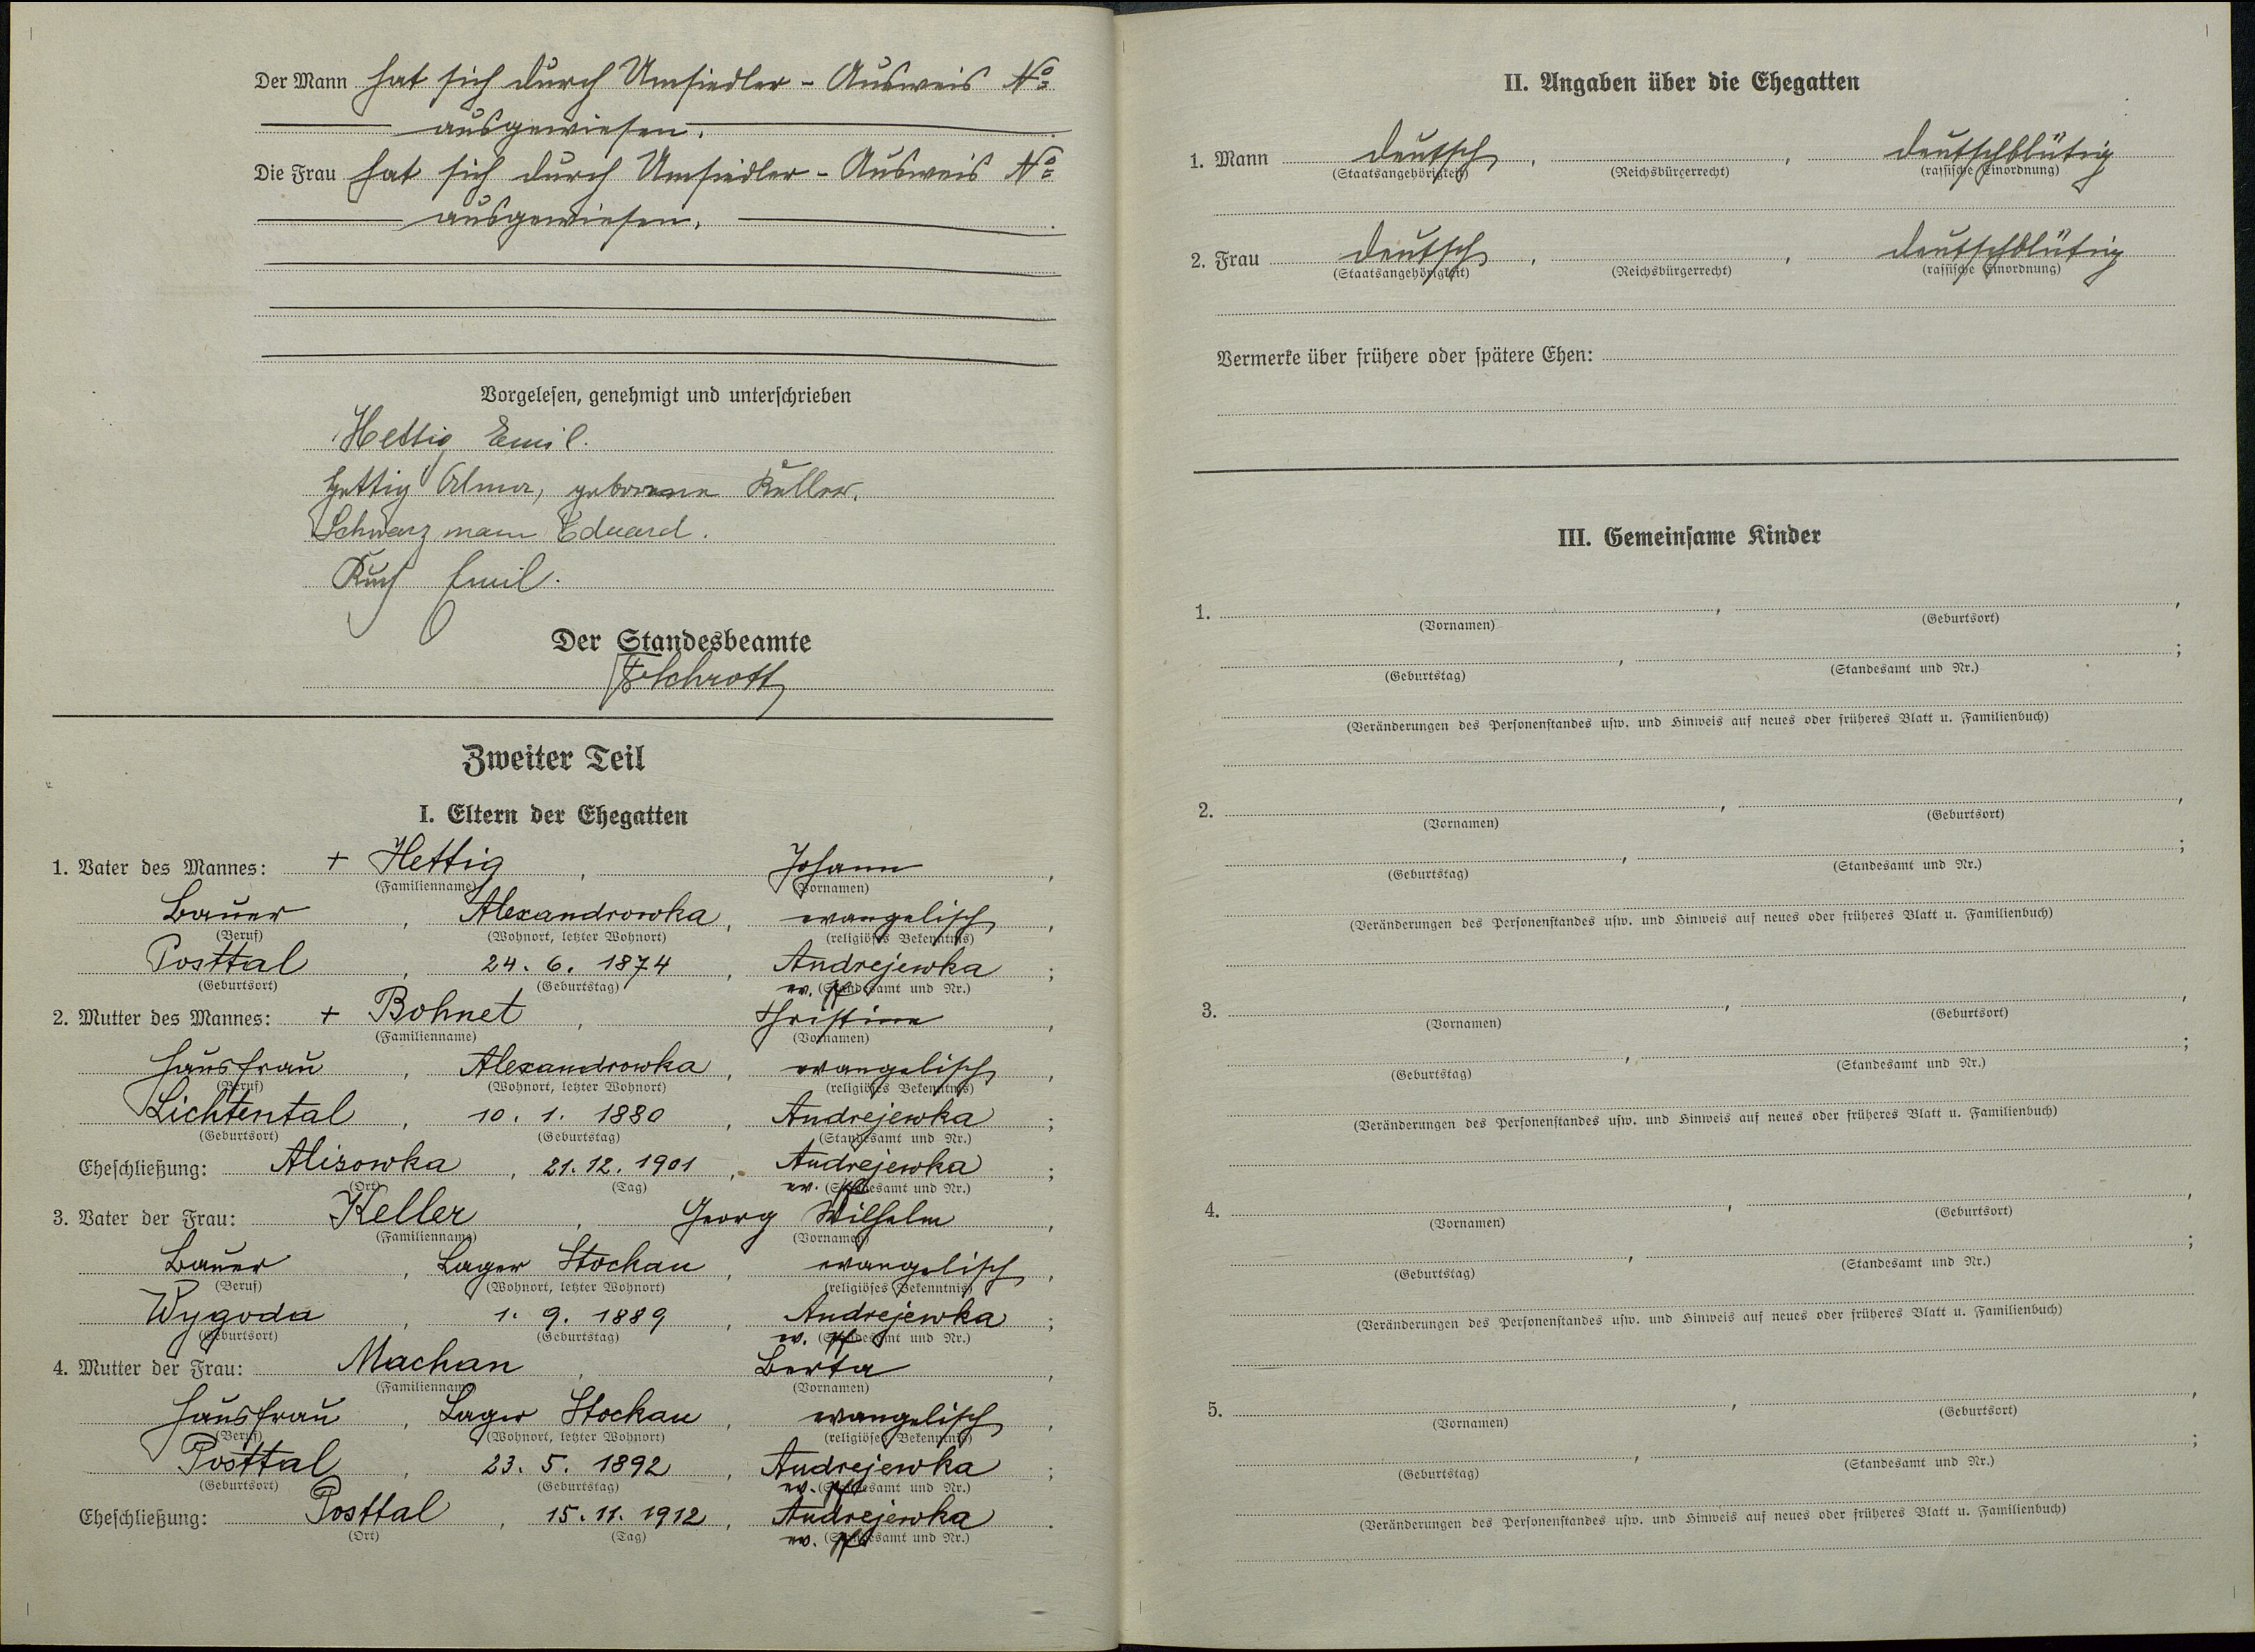 Der Mann hat sich durch Umsiedler - Ausweis No
ausgewiesen.
Die Frau hat sich durch Umsiedler - Ausweis No
ausgewiesen.
Vorgelesen, genehmigt und unterschrieben
Hettig Emil.
Hettig Alma, geborene Keller.
Schwarzmann Eduard.
Kuch Emil.
Der Standesbeamte
Zweiter Teil
I. Eltern der Ehegatten
1. Vater des Mannes: + Hettig, Johann,
(Familienname) (Vornamen)
Bauer, Alexandrowka, evangelisch,
(Beruf) (Wohnort, letzter Wohnort) (religiöses Bekenntnis)
Posttal, 24. 6. 1874, Andrejewka;
(Geburtsort) (Geburtstag) ev. (Standesamt und Nr.)
2. Mutter des Mannes: + Bohnet, Christine,
(Familienname) (Vornamen)
Hausfrau, Alexandrowka, evangelisch,
(Beruf) (Wohnort, letzter Wohnort) (religiöses Bekenntnis)
Lichtental, 10. 1. 1880, Andrejewka;
(Geburtsort) (Geburtstag) (Standesamt und Nr.)
Eheschließung: Alisowka, 21. 12. 1901, Andrejewka;
(Ort) (Tag) ev. (Standesamt und Nr.)
3. Vater der Frau: Keller, Georg Wilhelm,
(Familienname) (Vornamen)
Bauer, Lager Stockau, evangelisch,
(Beruf) (Wohnort, letzter Wohnort) (religiöses Bekenntnis)
Wygoda, 1. 9. 1889, Andrejewka;
(Geburtsort) (Geburtstag) ev. (Standesamt und Nr.)
4. Mutter der Frau: Machan, Berta,
(Familienname) (Vornamen)
Hausfrau, Lager Stockau, evangelisch,
(Beruf) (Wohnort, letzter Wohnort) (religiöses Bekenntnis)
Posttal, 23. 5. 1892, Andrejewka;
(Geburtsort) (Geburtstag) ev. (Standesamt und Nr.)
Eheschließung: Posttal, 15. 11. 1912, Andrejewka.
(Ort) (Tag) ev. (Standesamt und Nr.)
II. Angaben über die Ehegatten
1. Mann deutsch, , deutschblütig
(Staatsangehörigkeit) (Reichsbürgerrecht) (rassische Einordnung)
2. Frau deutsch, , deutschblütig
(Staatsangehörigkeit) (Reichsbürgerrecht) (rassische Einordnung)
Vermerke über frühere oder spätere Ehen:
III. Gemeinsame Kinder
1. , ,
(Vornamen) (Geburtsort)
, ;
(Geburtstag) (Standesamt und Nr.)
(Veränderungen des Personenstandes usw. und Hinweis auf neues oder früheres Blatt u. Familienbuch)
2. , ,
(Vornamen) (Geburtsort)
, ;
(Geburtstag) (Standesamt und Nr.)
(Veränderungen des Personenstandes usw. und Hinweis auf neues oder früheres Blatt u. Familienbuch)
3. , ,
(Vornamen) (Geburtsort)
, ;
(Geburtstag) (Standesamt und Nr.)
(Veränderungen des Personenstandes usw. und Hinweis auf neues oder früheres Blatt u. Familienbuch)
4. , ,
(Vornamen) (Geburtsort)
, ;
(Geburtstag) (Standesamt und Nr.)
(Veränderungen des Personenstandes usw. und Hinweis auf neues oder früheres Blatt u. Familienbuch)
5. , ,
(Vornamen) (Geburtsort)
, ;
(Geburtstag) (Standesamt und Nr.)
(Veränderungen des Personenstandes usw. und Hinweis auf neues oder früheres Blatt u. Familienbuch)